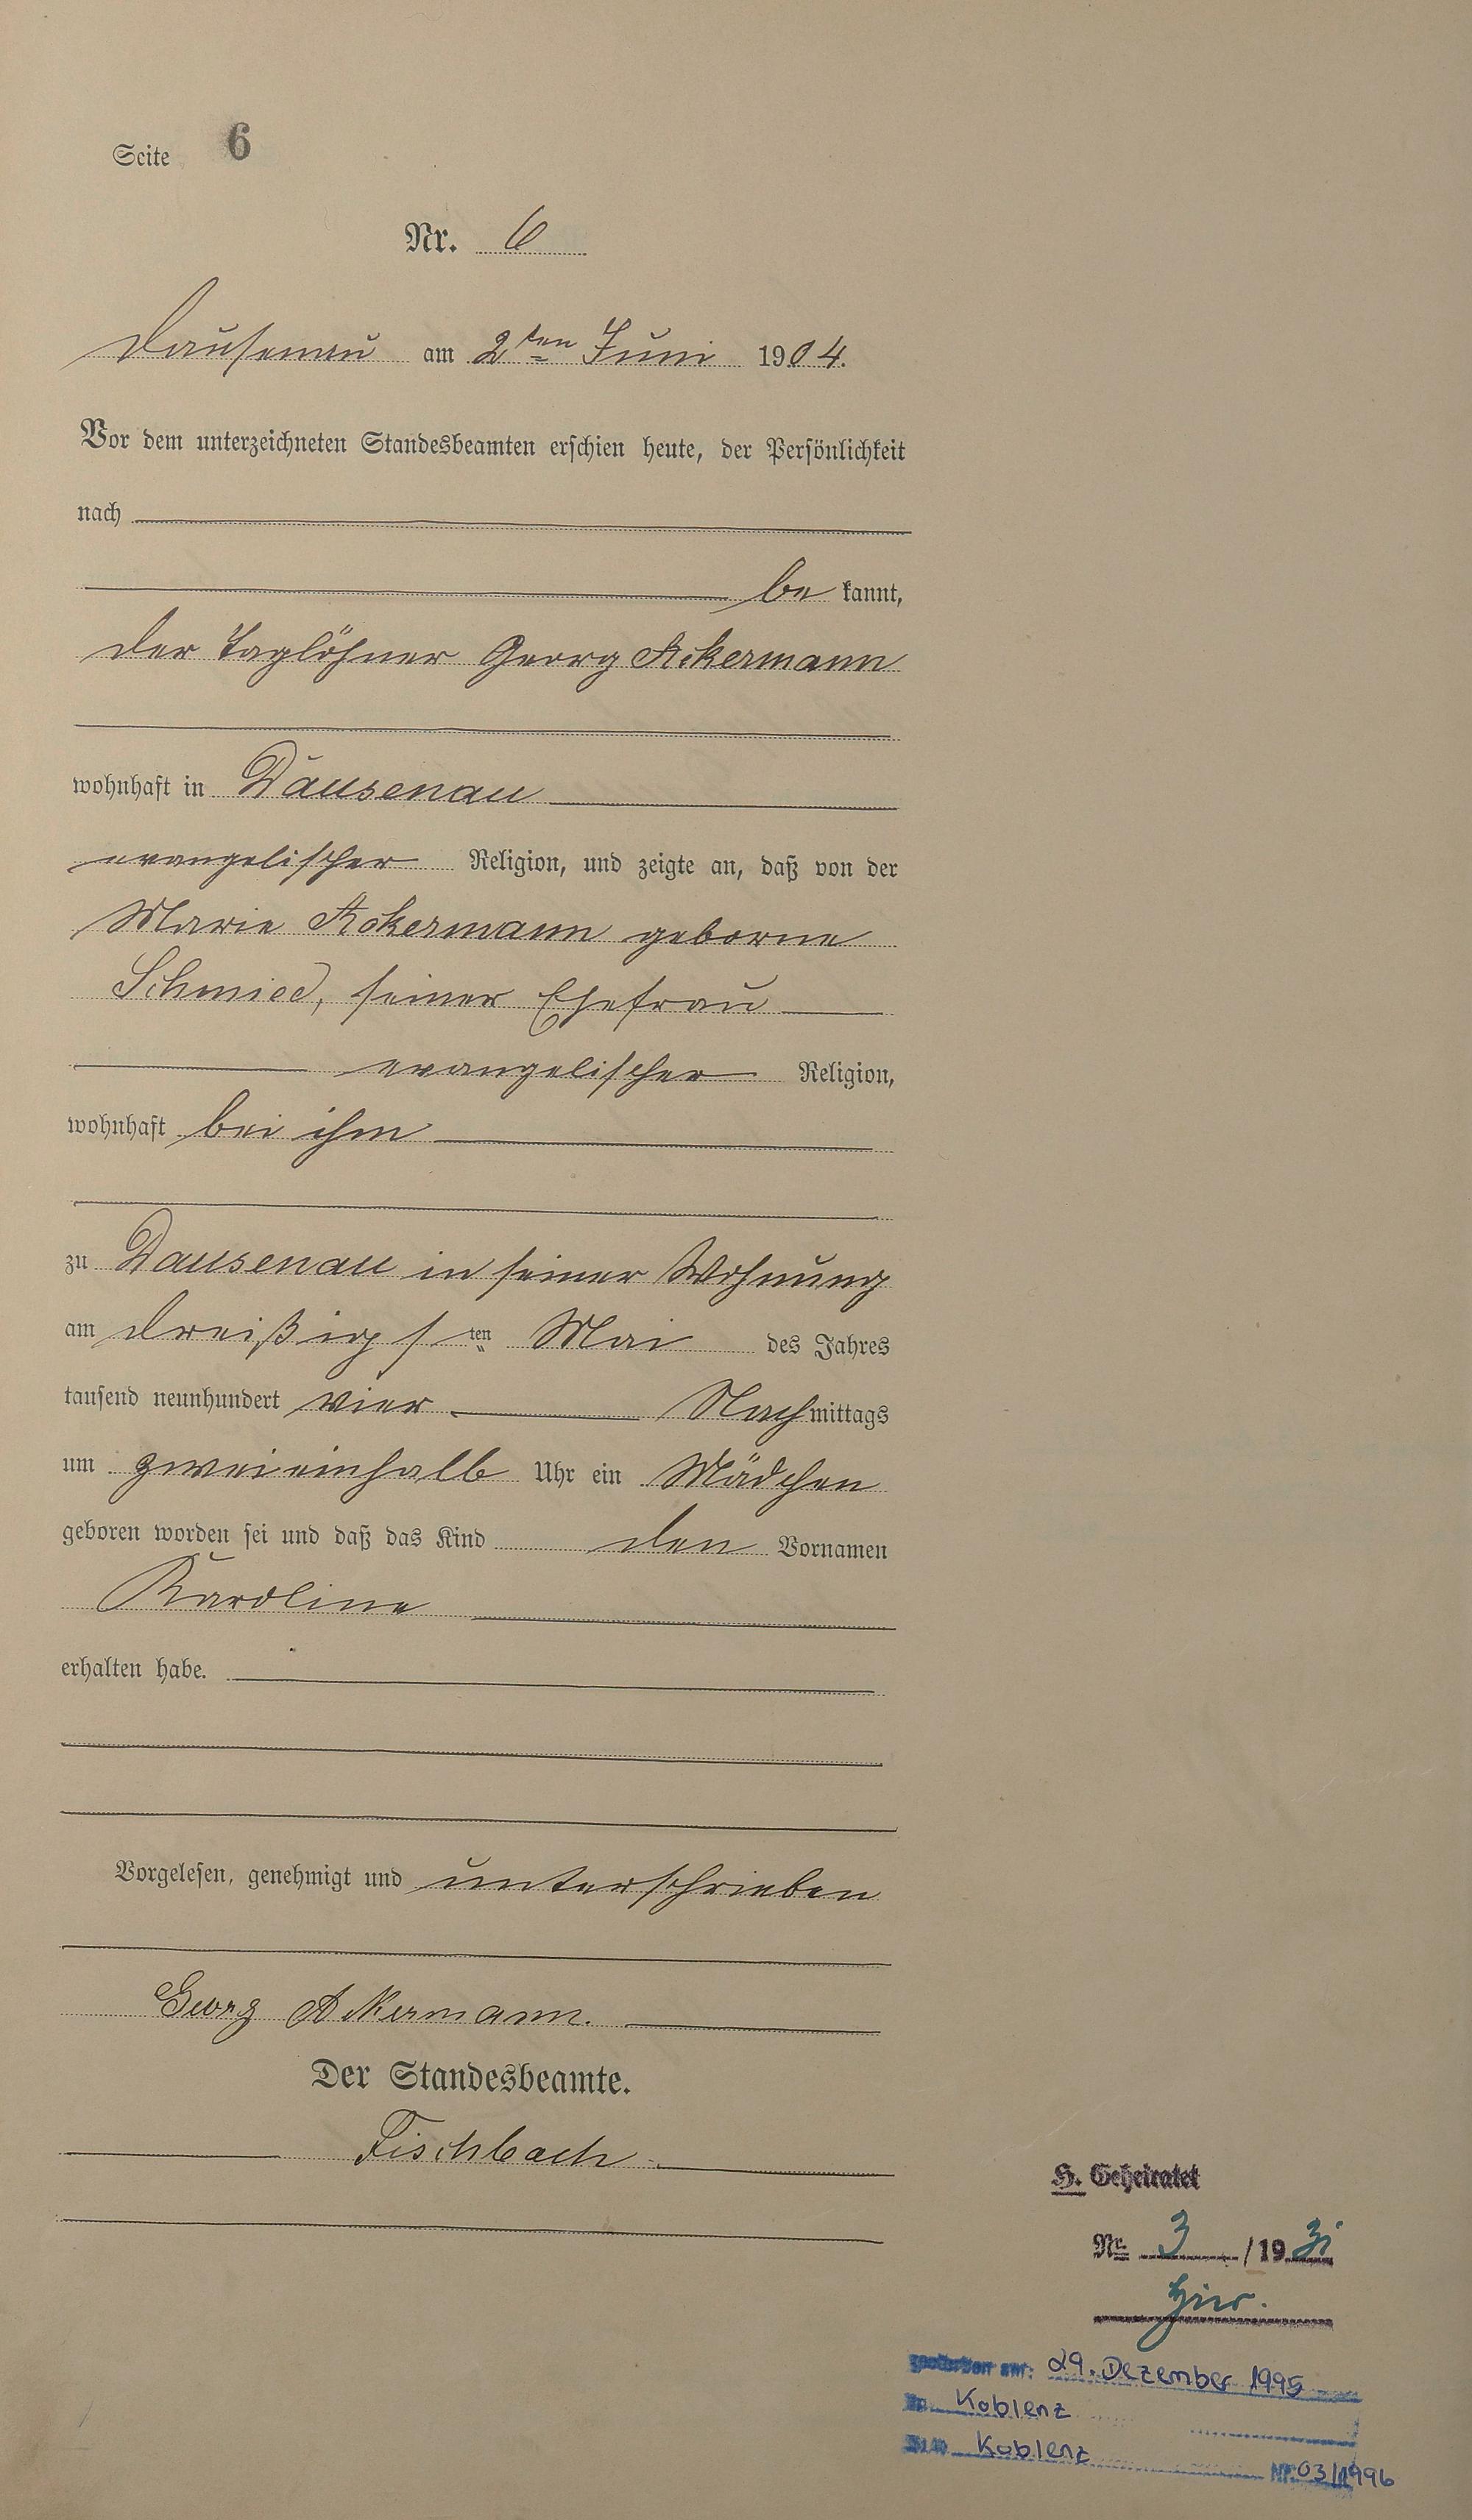 Seite 6
Nr. 6
Dausenau am 2ten Juni 1904.
Vor dem unterzeichneten Standesbeamten erschien heute, der Persönlichkeit
nach
be kannt,
der Taglöhner Georg Ackermann
wohnhaft in Dausenau
evangelischer Religion, und zeigte an, daß von der
Marie Ackermann geborne
Schmied, seiner Ehefrau
evangelischer Religion,
wohnhaft bei ihm
zu Dausenau in seiner Wohnung
am dreißigsten Mai des Jahres
tausend neunhundert vier Nachmittags
um zweieinhalb Uhr ein Mädchen
geboren worden sei und daß das Kind den Vornamen
Karoline
erhalten habe.
Vorgelesen, genehmigt und unterschrieben
Georg Ackermann.
Der Standesbeamte.
Fischbach
H. Geheiratet
Nr. 3 /1931
hier.
gestorben am: 29. Dezember 1995
in Koblenz
StA Koblenz Nr. 03/1996